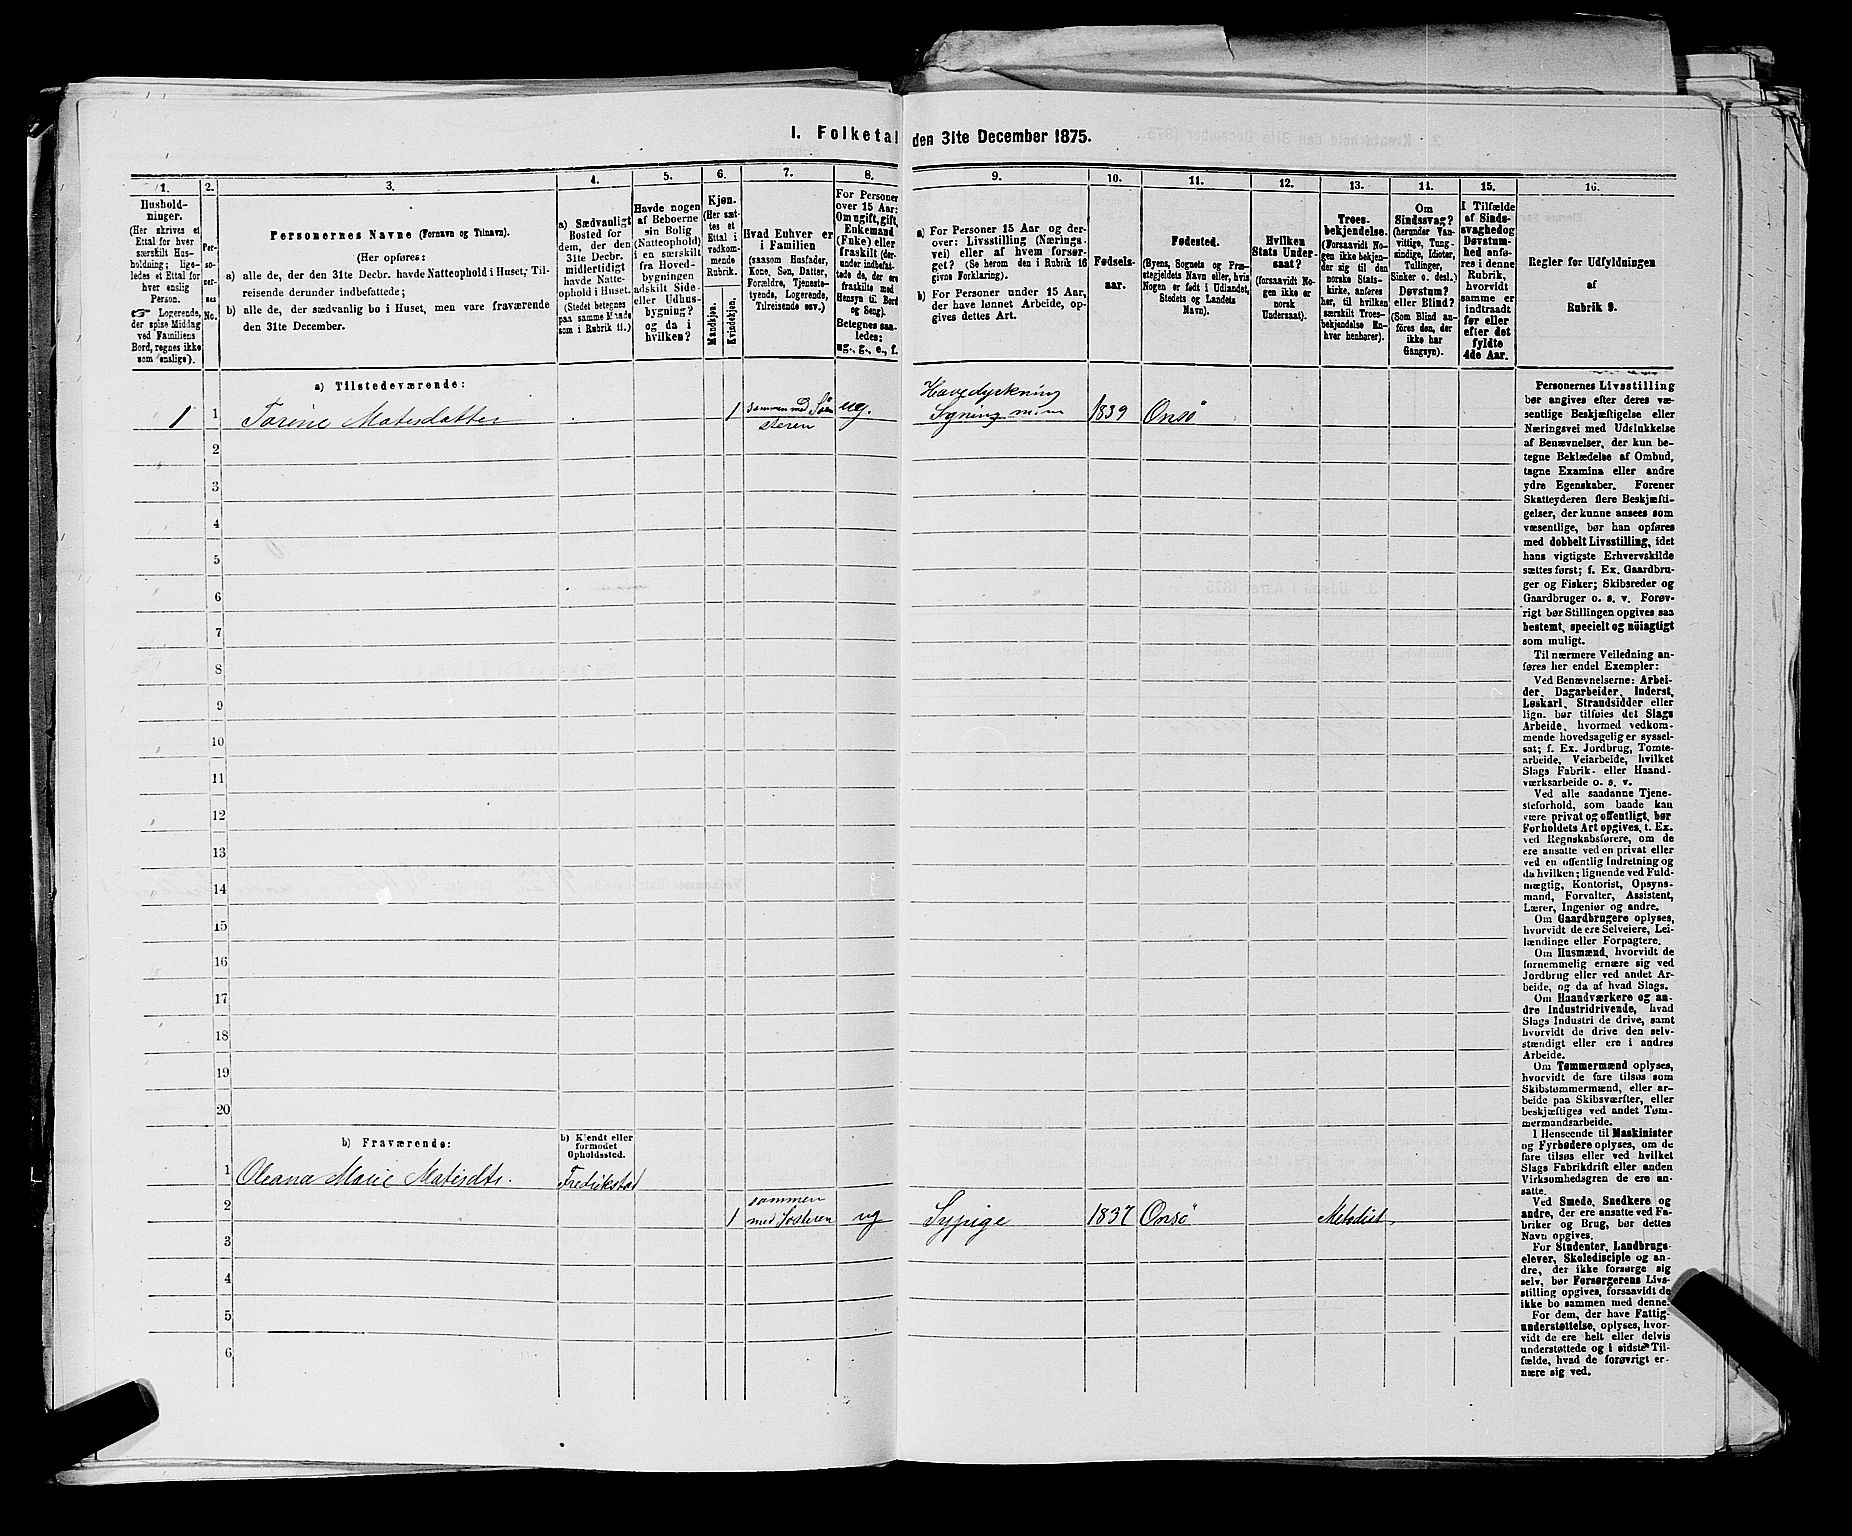 I. Folketal den 31te December 1875.
1.
Hushold-
ninger.
(Her skrives et
Ettal for hver
særskilt Hus-
holdning; lige-
ledes et Ettal for
hver enslig
Person.
☞ Logerende,
der spise Middag
ved Familiens
Bord, regnes ikke
som enslige).
2.
Per-
so-
ner-
nes
No.
3.
Personernes Navne (Fornavn og Tilnavn).
(Her opføres:
a) alle de, der den 31te Decbr. havde Natteophold i Huset, Til-
reisende derunder indbefattede;
b) alle de, der sædvanlig bo i Huset, men vare fraværende
den 31te December.
4.
a) Sædvanligt
Bosted for
dem, der den
31te Decbr.
midlertidigt
havde Natte-
ophold i Huset.
(Stedet betegnes
paa samme Maade
som i Rubrik 11.)
5.
Havde nogen
af Beboerne
sin Bolig
(Natteophold)
i en særskilt
fra Hoved-
bygningen
adskilt Side-
eller Udhus-
bygning?
og da i
hvilken?
6.
Kjøn.
(Her sæt-
tes et
Ettal i
vedkom-
mende
Rubrik.
Mandkjøn.
Kvindekjøn.
7.
Hvad Enhver er
i Familien
(saasom Husfader,
Kone, Søn, Datter,
Forældre, Tjeneste-
tyende, Logerende,
Tilreisende osv.)
8.
For Personer
over 15 Aar:
Om ugift, gift,
Enkemand
(Enke) eller
fraskilt (der-
under indbefat-
tede de, der ere
fraskilte med
Hensyn til Bord
og Seng).
Betegnes saa-
ledes:
ug., g., e., f.
9.
a) For Personer 15 Aar og der-
over: Livsstilling (Nærings-
vei) eller af hvem forsør-
get? (Se herom den i Rubrik 16
givne Forklaring).
b) For Personer under 15 Aar,
der have lønnet Arbeide, op-
gives dettes Art.
10.
Fødsels-
aar.
11.
Fødested.
(Byens, Sognets og Præ-
stegjeldets Navn eller, hvis
Nogen er født i Udlandet,
Stedets og Landets
Navn).
12.
Hvilken
Stats Under-
saat?
(forsaavidt No-
gen ikke er
norsk
Undersaat).
13.
Troes-
bekjendelse.
(Forsaavidt No-
gen ikke bekjen-
der sig til den
norske Stats-
kirke, anføres
her, til hvilken
særskilt Troes-
bekjendelse En-
hver henhører).
14.
Om
Sindssvag?
(herunder Van-
vittige, Tung-
sindige, Idioter,
Tullinger,
Sinker o. desl.)
Døvstum?
eller Blind?
(Som Blind an-
føres den, der
ikke har
Gangsyn).
15.
I Tilfælde
af Sinds-
svaghed og
Døvstum-
hed anfø-
res i denne
Rubrik,
hvorvidt
samme er
indtraadt
før eller
efter det
fyldte
4de Aar.
16.
Regler for Udfyldningen
af
Rubrik 9.
a) Tilstedeværende:
1
1
Torine Matisdatter
1
sammen med Sø
steren
ug.
Havedyrkning
Syning
1839
Onsö
2
3
4
5
6
7
8
9
10
11
12
13
14
15
16
17
18
19
20
b) Fraværende:
b) Kjendt eller
formodet
Opholdssted.
1
Oleana Marie Matisdtr.
Fredrikstad
2
1
sammen
med Søsteren
ug
Sypige
1837
Onsö
Metodist
3
4
5
6
Personernes Livsstilling
bør angives efter deres væ-
sentlige Beskjæftigelse eller
Næringsvei med Udelukkelse
af Benævnelser, der kun be-
tegne Beklædelse af Ombud,
tagne Examina eller andre
ydre Egenskaber. Forener
Skatteyderen flere Beskjæfti-
gelser, der kunne ansees som
væsentlige, bør han opføres
med dobbelt Livsstilling, idet
hans vigtigste Erhvervskilde
sættes først; f. Ex. Gaardbru-
ger og Fisker; Skibsreder og
Gaardbruger o. s. v. Forøv-
rigt bør Stillingen opgives saa
bestemt, specielt og nøiagtigt
som muligt.
Til nærmere Veiledning an-
føres her endel Exempler:
Ved Benævnelserne: Arbei-
der, Dagarbeider, Inderst,
Løskarl, Strandsidder eller
lign. bør tilføies det Slags
Arbeide, hvormed vedkom-
mende hovedsagelig er syssel-
sat; f. Ex. Jordbrug, Tomte-
arbeide, Veiarbeide, hvilket
Slags Fabrik- eller Haand-
værksarbeide o. s. v.
Ved alle saadanne Tjene-
steforhold, som baade kan
være privat og offentligt, bør
Forholdets Art opgives, t. Ex.
ved Regnskabsførere, om de
ere ansatte ved en privat eller
ved en offentlig Indretning og
da hvilken; lignende ved Fuld-
mægtig, Kontorist, Opsyns-
mand, Forvalter, Assistent,
Lærer, Ingeniør og andre.
Om Gaardbrugere oplyses,
hvorvidt de ere Selveiere, Lei-
lændinge eller Forpagtere.
Om Husmænd, hvorvidt de
fornemmelig ernære sig ved
Jordbrug eller ved andet Ar-
beide, og da af hvad Slags.
Om Haandværkere og an-
dre Industridrivende, hvad
Slags Industri de drive, samt
hvorvidt de drive den selv-
stændigt eller ere i andres
Arbeide.
Om Tømmermænd oplyses,
hvorvidt de fare tilsøs som
Skibstømmermænd, eller ar-
beide paa Skibsværfter, eller
beskjæftiges ved andet Tøm-
mermandsarbeide.
I Henseende til Maskinister
og Fyrbødere oplyses, om de
fare tilsøs eller ved hvilket
Slags Fabrikdrift eller anden
Virksomhedsgren de ere an-
satte.
Ved Smede, Snedkere og
andre, der ere ansatte ved Fa-
briker og Brug, bør dettes
Navn opgives.
For Studenter, Landbrugs-
elever, Skoledisciple og an-
dre, der ikke forsørge sig
selv, bør Forsørgerens Livs-
stilling opgives, forsaavidt de
ikke bo sammen med denne.
For dem, der have Fattig-
understøttelse, oplyses, hvor-
vidt de ere helt eller delvis
understøttede og i sidste Til-
fælde, hvad de forøvrigt er-
nære sig ved.